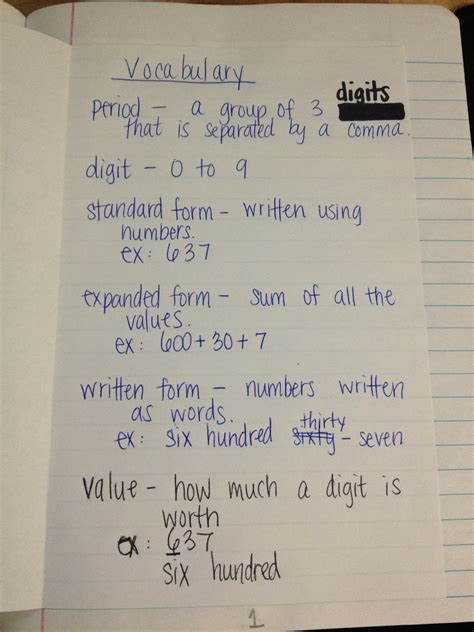 Vocabulary
period – a group of 3 digits
that is separated by a comma.
digit – 0 to 9
standard form – written using
numbers.
ex: 637
expanded form – sum of all the
values.
ex: 600 + 30 + 7
written form – numbers written
as words.
ex: six hundred sixty thirty – seven
value – how much a digit is
worth
ex: 637
six hundred
1